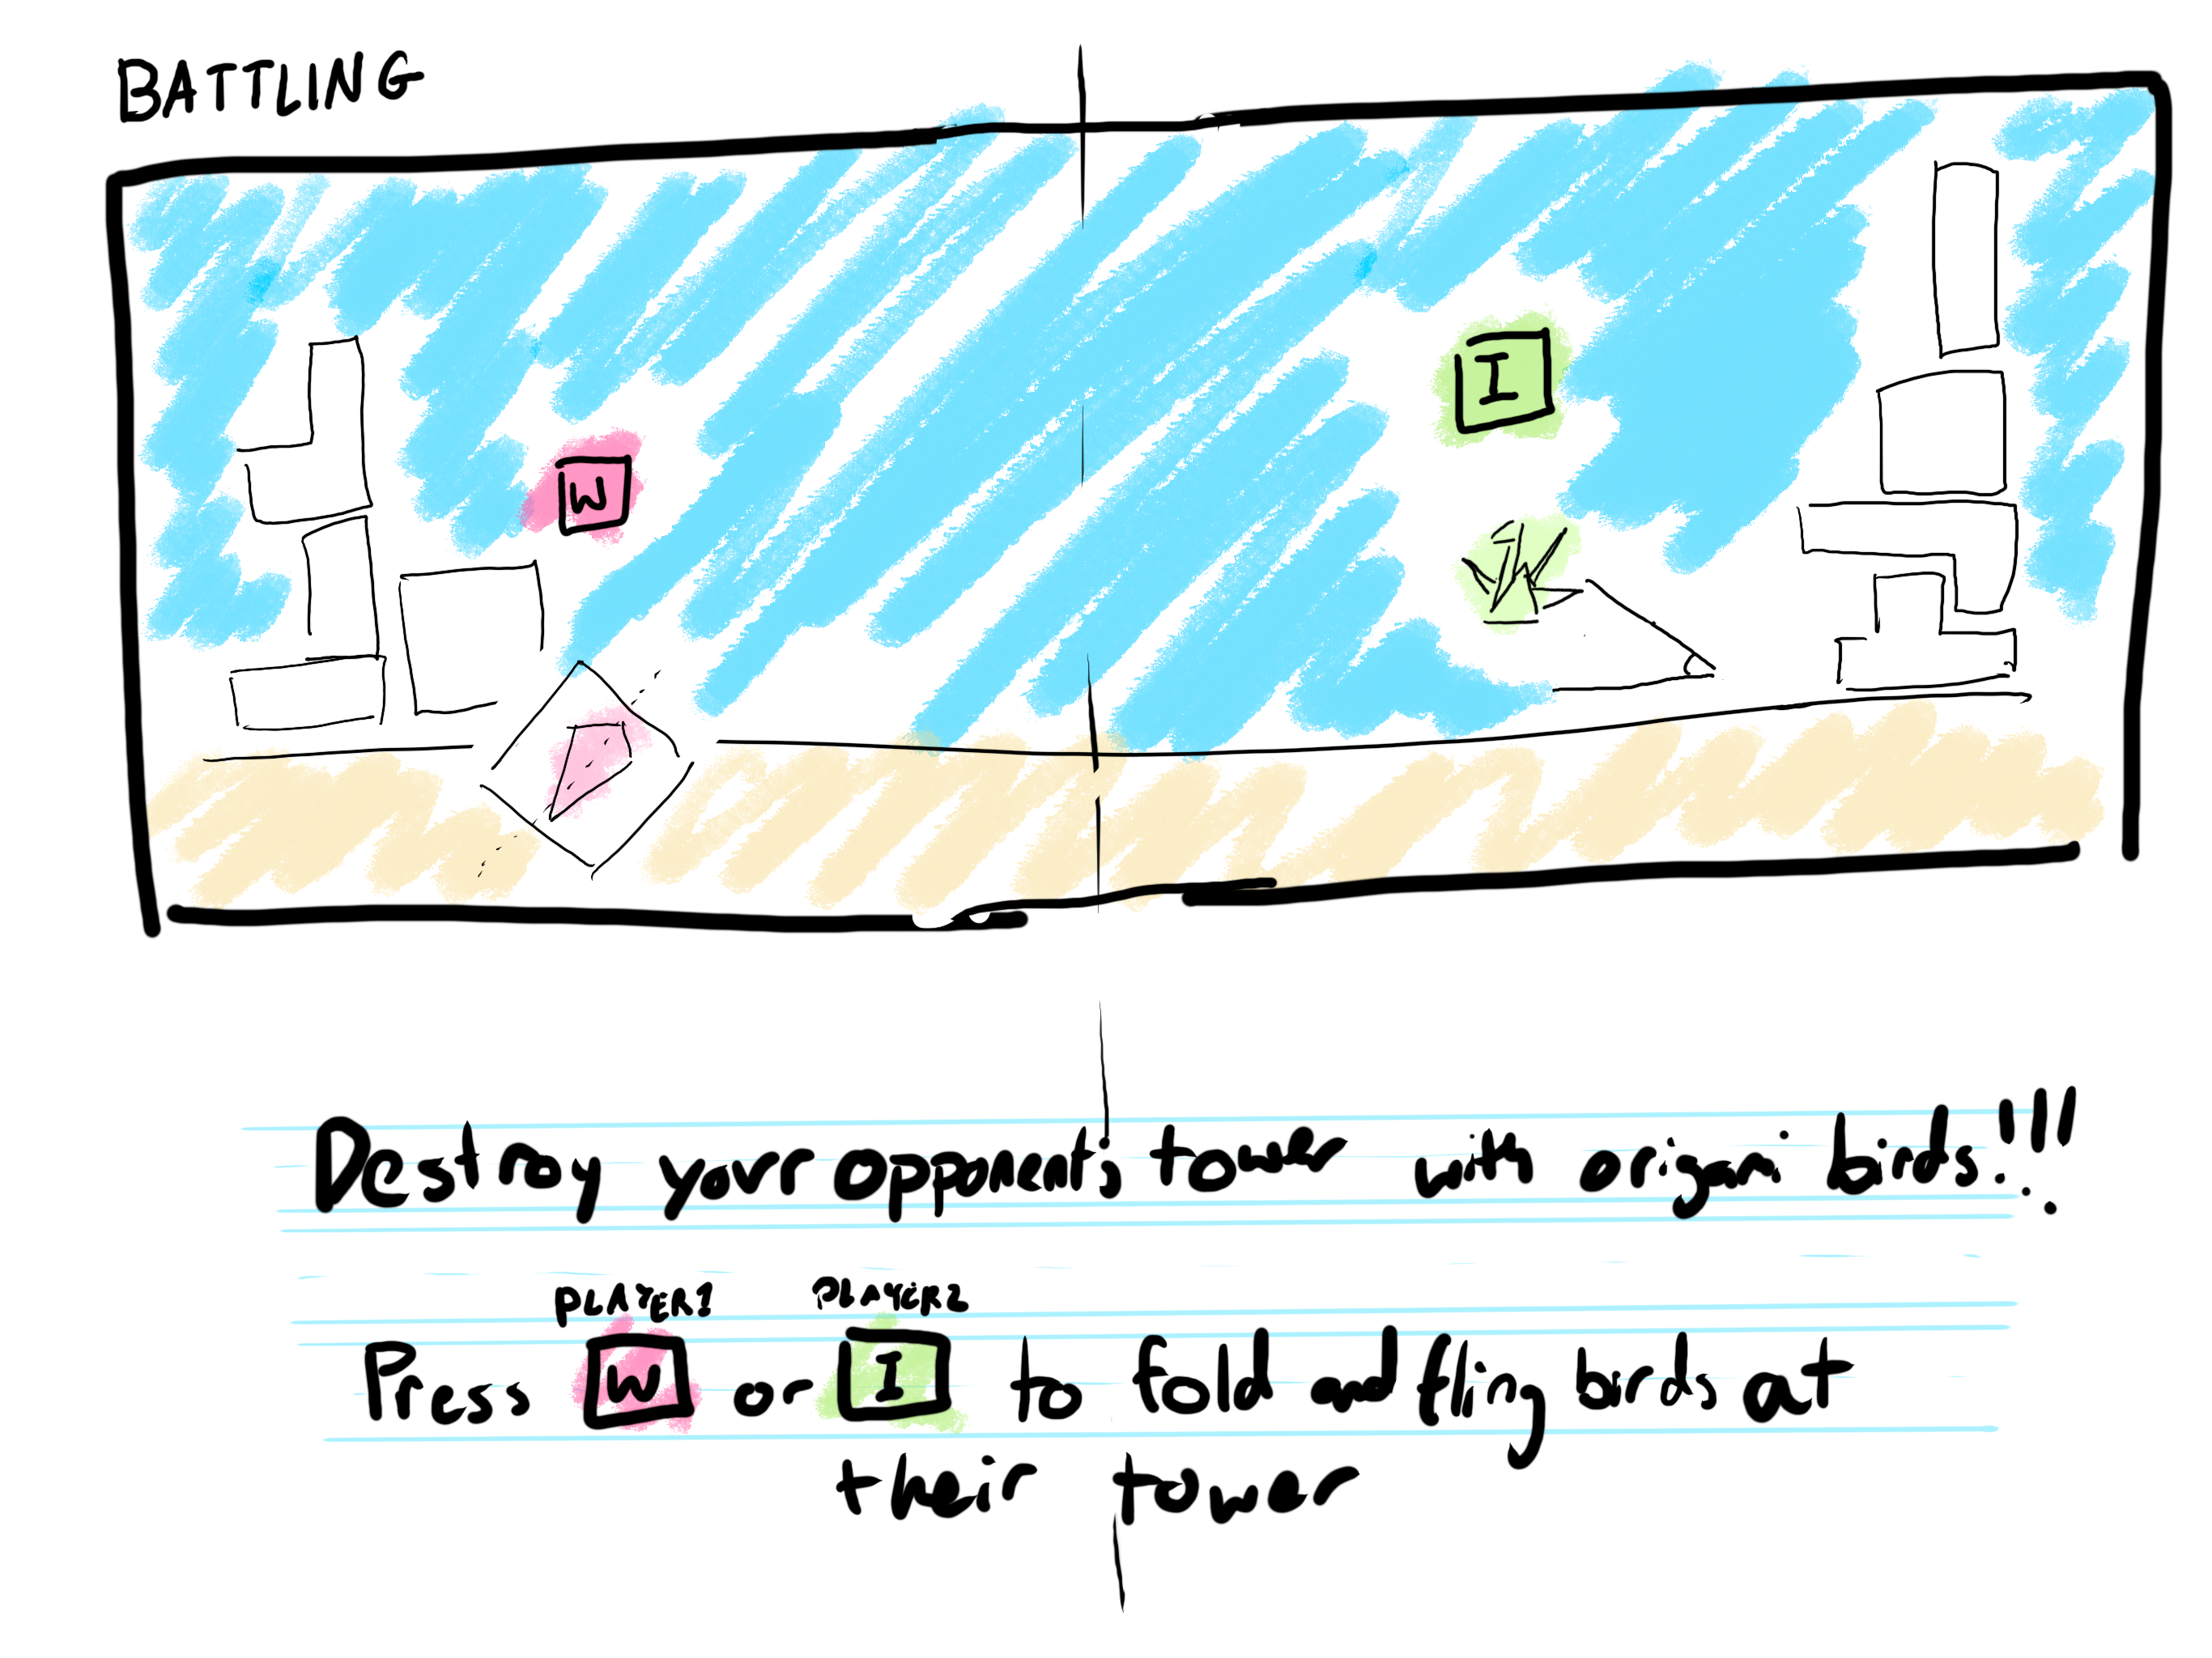 BATTLING
I
W
Destroy your opponent's tower with origami birds!!!
PLAYER1 PLAYER2
Press W or I to fold and fling birds at
their tower